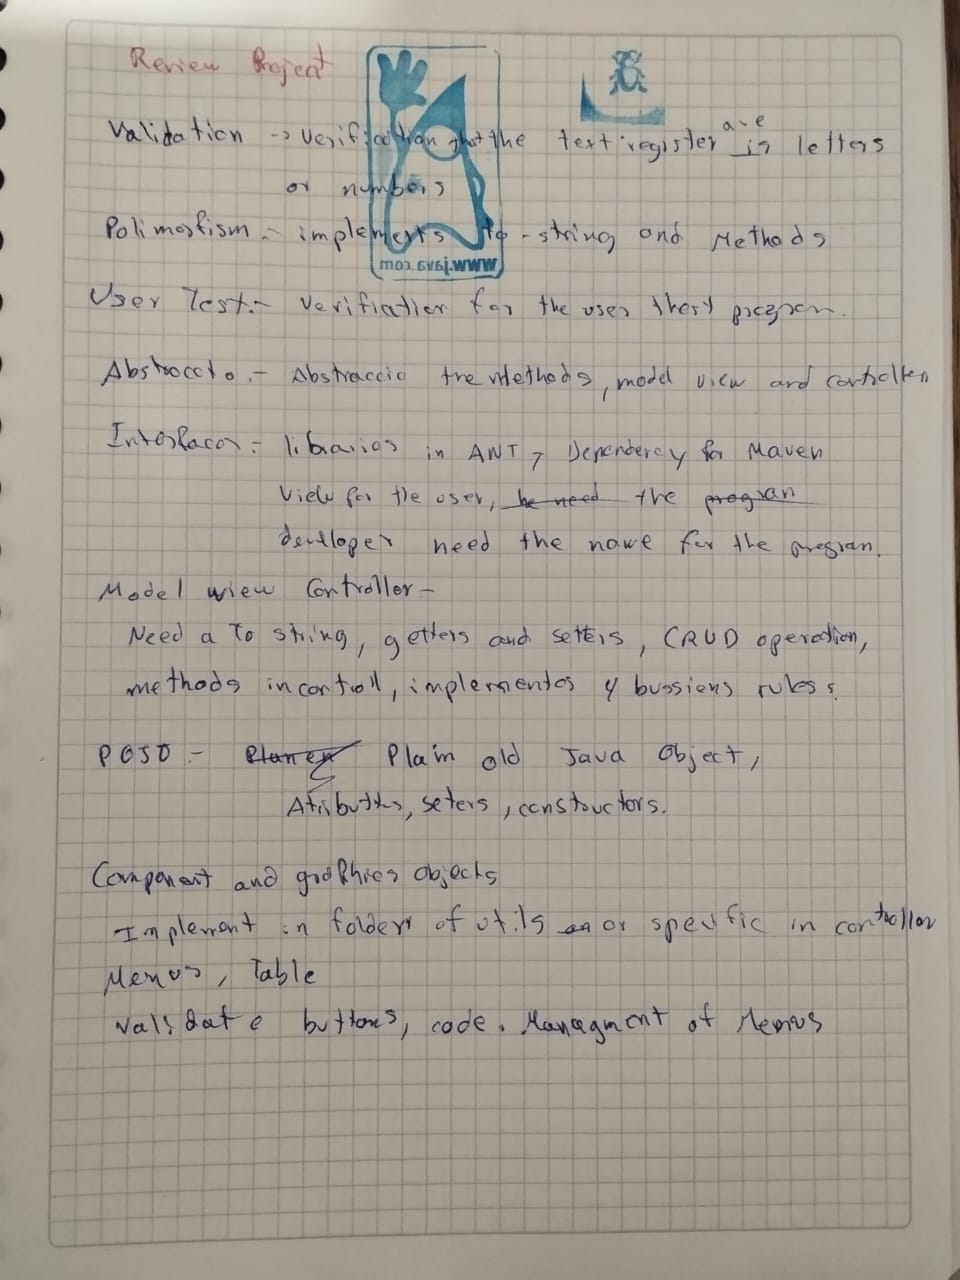 Review Project
Validation -> verification that the text register is are letters
or numbers
Polimorfism.- implements to-string and Methods
www.java.com
User Test.- Verifiation for the user thest
Abstraccto.- Abstraccio the Methods, model view and controller
Interfaces.- librarios in ANT, Dependercy for Maven
View for the user, he need the program
developer need the name for the program.
Model wiew Controller-
Need a To string, getters and setters, CRUD operation,
methods in controll, implementos y bussiens rules.
POJO.- Planen Plain old Java Object,
Atributtes, seters, constructors.
Component and graphics objects
Implement in folders of utils or spesific in controller
Menus, Table
Validate buttons, code. Managment of Menus